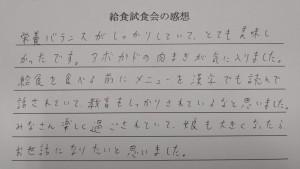 給食試食会の感想
栄養バランスがしっかりしていて、とても美味し
かったです。アボカドの肉まきが気に入りました。
給食を食べる前にメニューを漢字でも読んで
話されていて、教育もしっかりされているなと思いました。
みなさん楽しく過ごされていて、娘も大きくなったら
お世話になりたいと思いました。